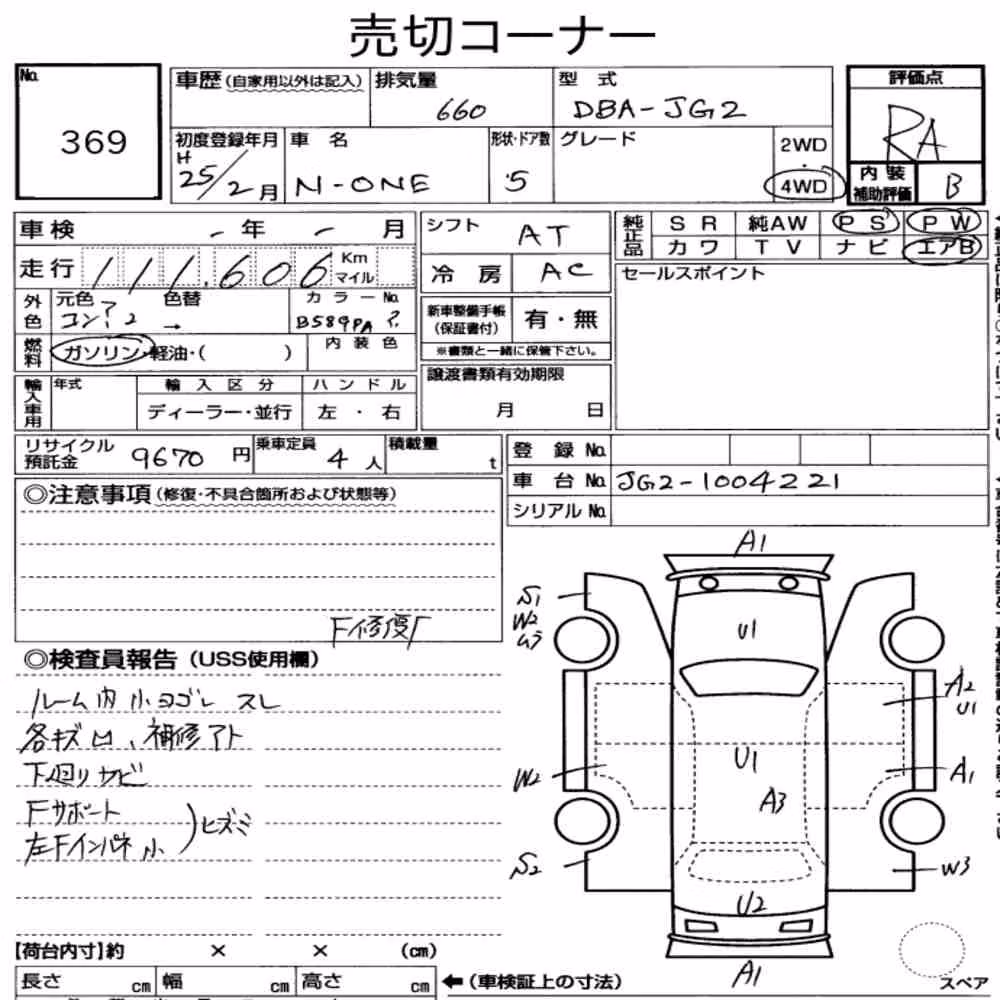 売切コーナー
No.
369
車歴(自家用以外は記入)
排気量
660
型 式
DBA-JG2
評価点
RA
初度登録年月
H
25/2月
車 名
N-ONE
形状・ドア数
5
グレード
2WD
・
4WD
内 装
補助評価
B
車検 - 年 - 月
シフト
AT
純正品
SR 純AW PS PW
カワ TV ナビ エアB
走行 111,606 Km
マイル
冷 房
AC
セールスポイント
外色
元色 色替
コン?2 →
カラーNo.
B589PA ?
新車整備手帳
(保証書付)
有・無
※書類と一緒に保管下さい。
燃料
ガソリン・軽油・( )
内装色
輸入車用
年式
輸入区分
ハンドル
ディーラー・並行
左・右
譲渡書類有効期限
月 日
リサイクル
預託金
9670 円
乗車定員
4 人
積載量
t
登 録 No.
車 台 No.
JG2-1004221
シリアル No.
◎注意事項(修復・不具合箇所および状態等)
F修復歴
◎検査員報告(USS使用欄)
ルーム内 小ヨゴレ スレ
各キズ凹、補修アト
下廻りサビ
Fサポート
左Fインパネ小
)ヒズミ
A1
S1
W2
ムラ
U1
A2
U1
W2
U1
A1
A3
S2
W3
U2
A1
スペア
【荷台内寸】約 × × (cm)
長さ cm 幅 cm 高さ cm
←(車検証上の寸法)